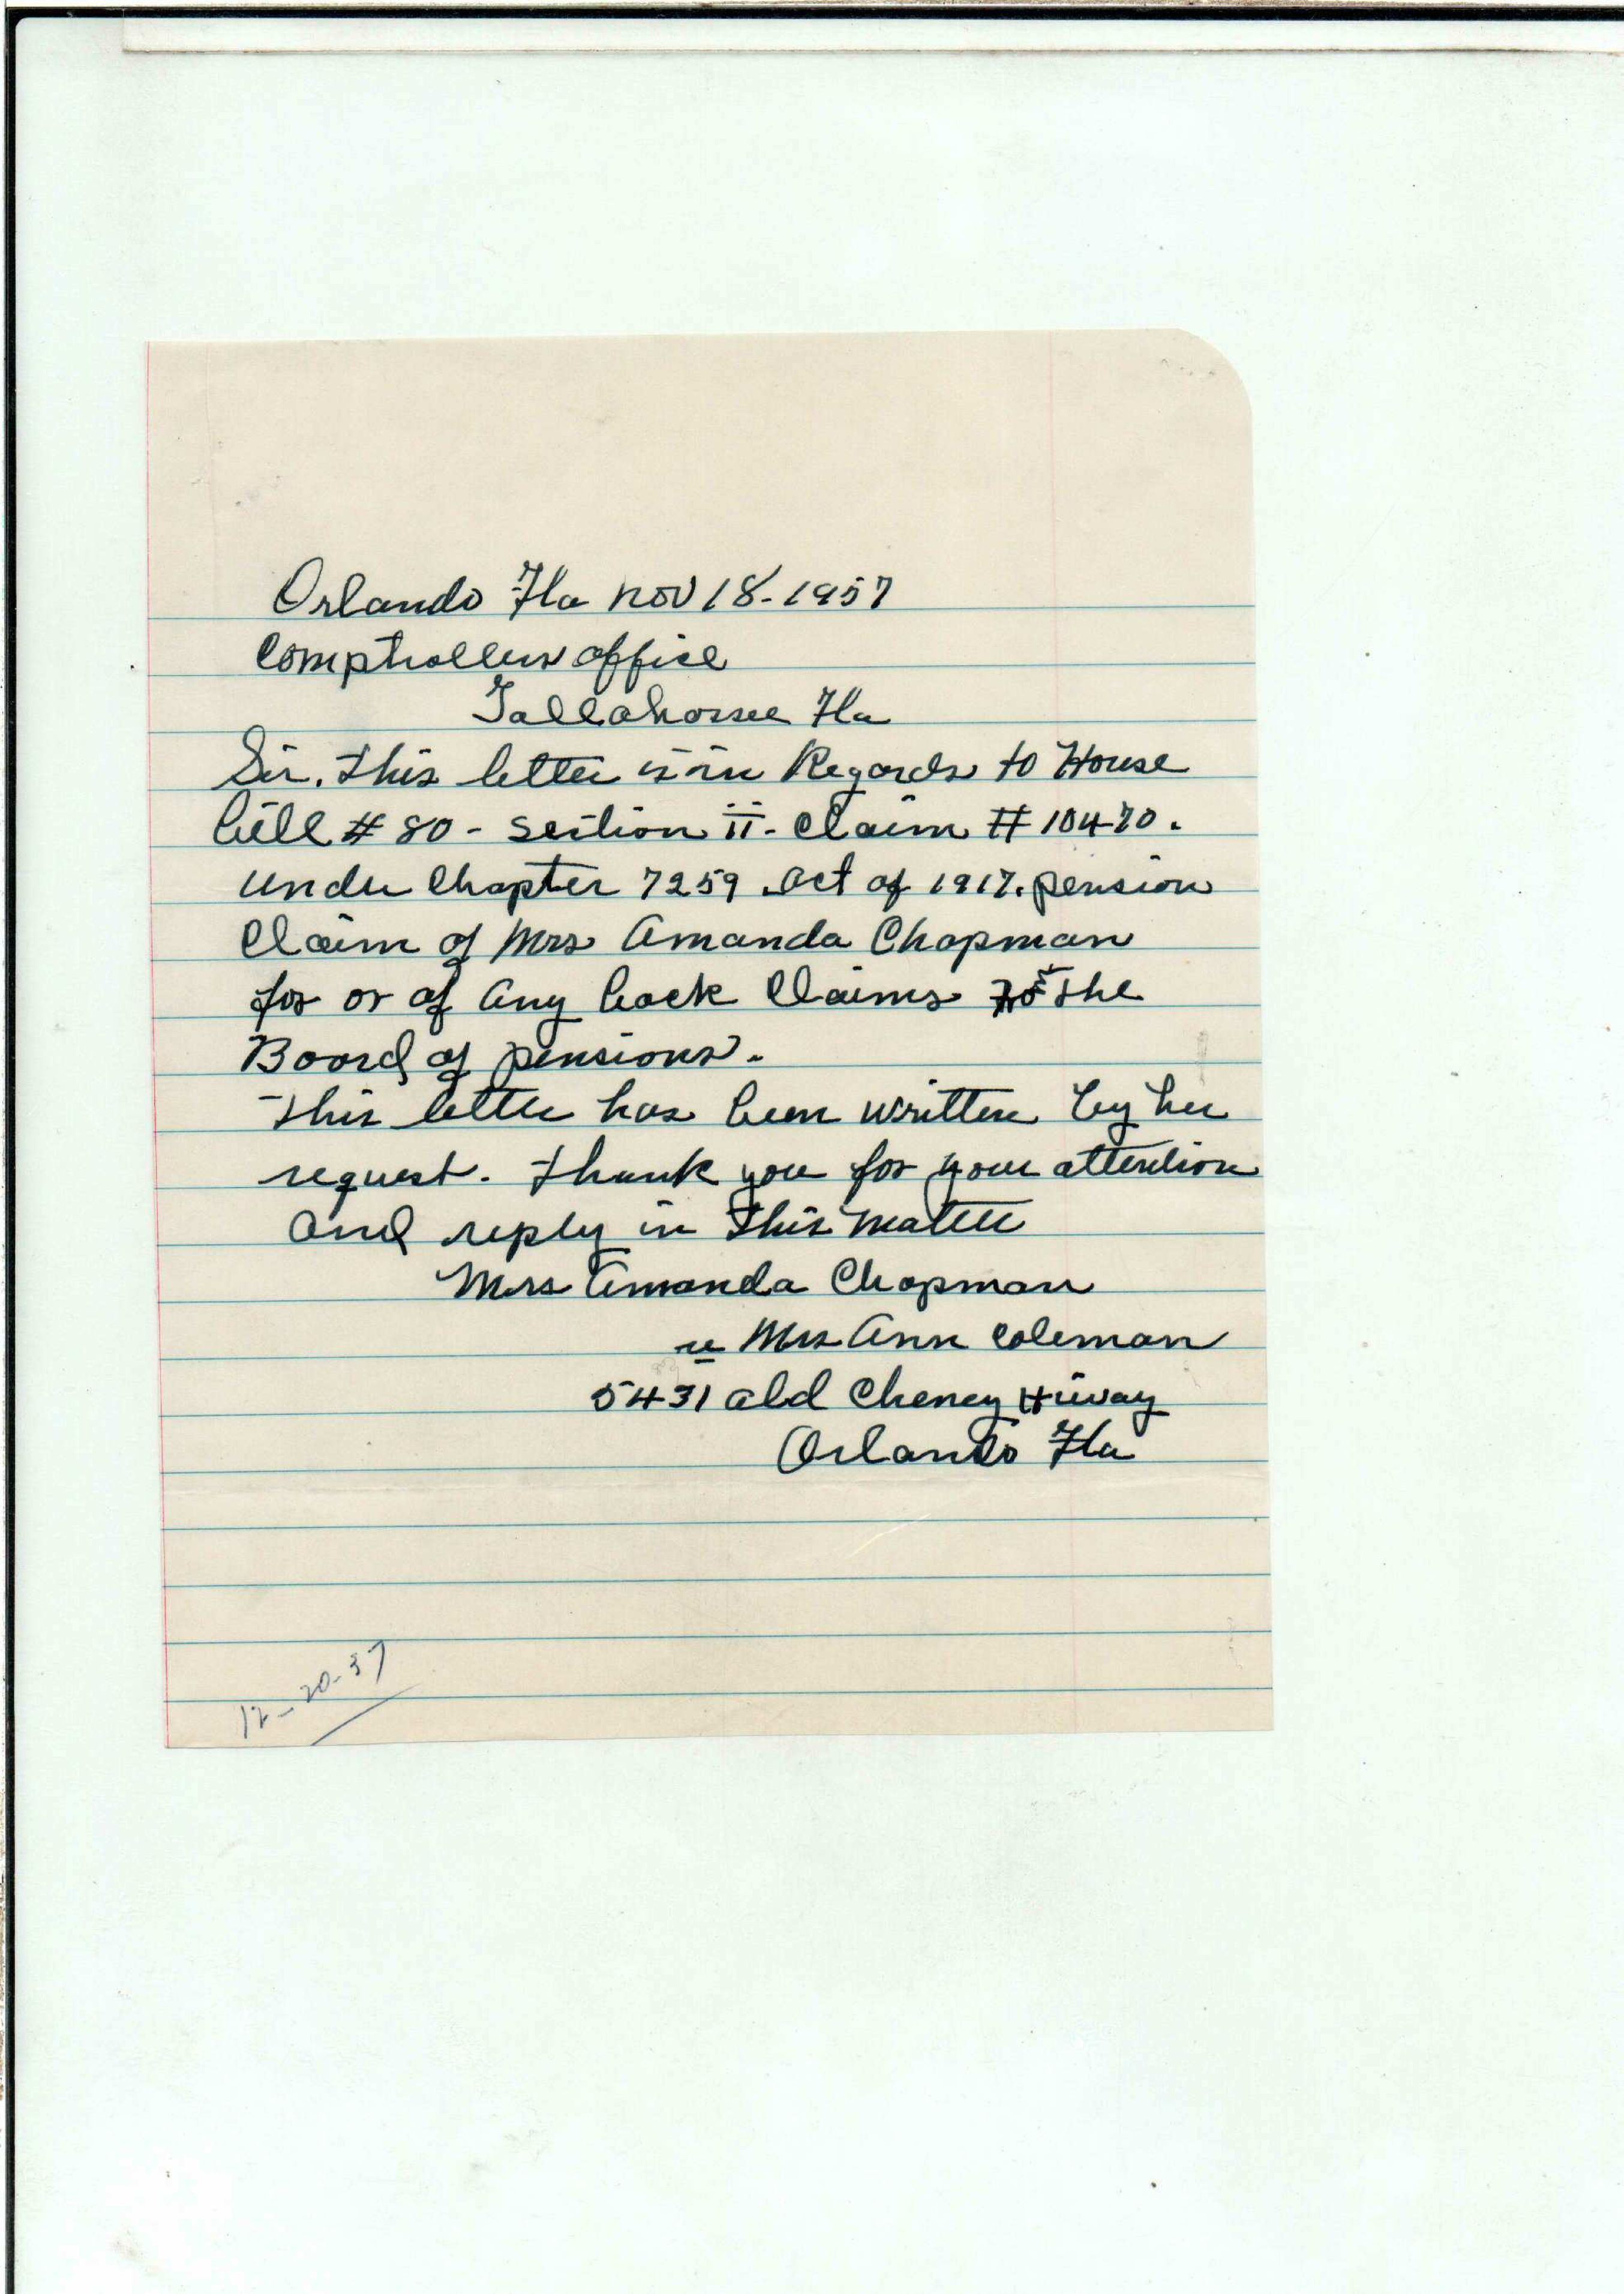 Orlando Fla Nov 18-1957
Comptrollers office
Tallahassee Fla
Sir. This letter is in Regards to House
bill # 80 - Section II - Claim # 10470.
under Chapter 7259 Act of 1917. pension
Claim of Mrs Amanda Chapman
for or of any back Claims to the
Board of pensions.
This letter has been written by her
request. Thank you for your attention
and reply in this matter
Mrs Amanda Chapman
Mrs Ann Coleman
5431 Old Cheney Hiway
Orlando Fla
12-20-57